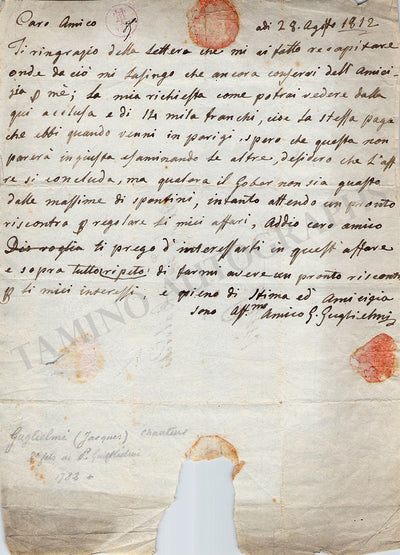 Caro Amico adi 28. Agosto 1812
Ti ringrazio della lettera che mi ai fatto recapitare
onde da ciò mi lusingo che ancora conservi dell'Amici-
zia p mè; la mia richiesta come potrai vedere dalla
qui acclusa e di 12 mila franchi, cioe la stessa paga
che ebbi quando venni in parigi, spero che questa non
parerà inquesta esaminando le altre, desidero che l'aff
re si concluda, ma qualora il non sia guasto
dalle massime di spontini, intanto attendo un pronto
riscontro p regolare li miei affari, Addio caro amico
Dio voglia ti prego d'interessarti in quest'affare
e sopra tutto ripeto di farmi avere un pronto riscont
p li miei interessi, e pieno di Stima ed Amicizia
sono aff.mo Amico G. Guglielmi
TAMINO AUTOGRAPHS
Guglielmi (Jacques) chanteur
fils de P. Guglielmi
1782 +